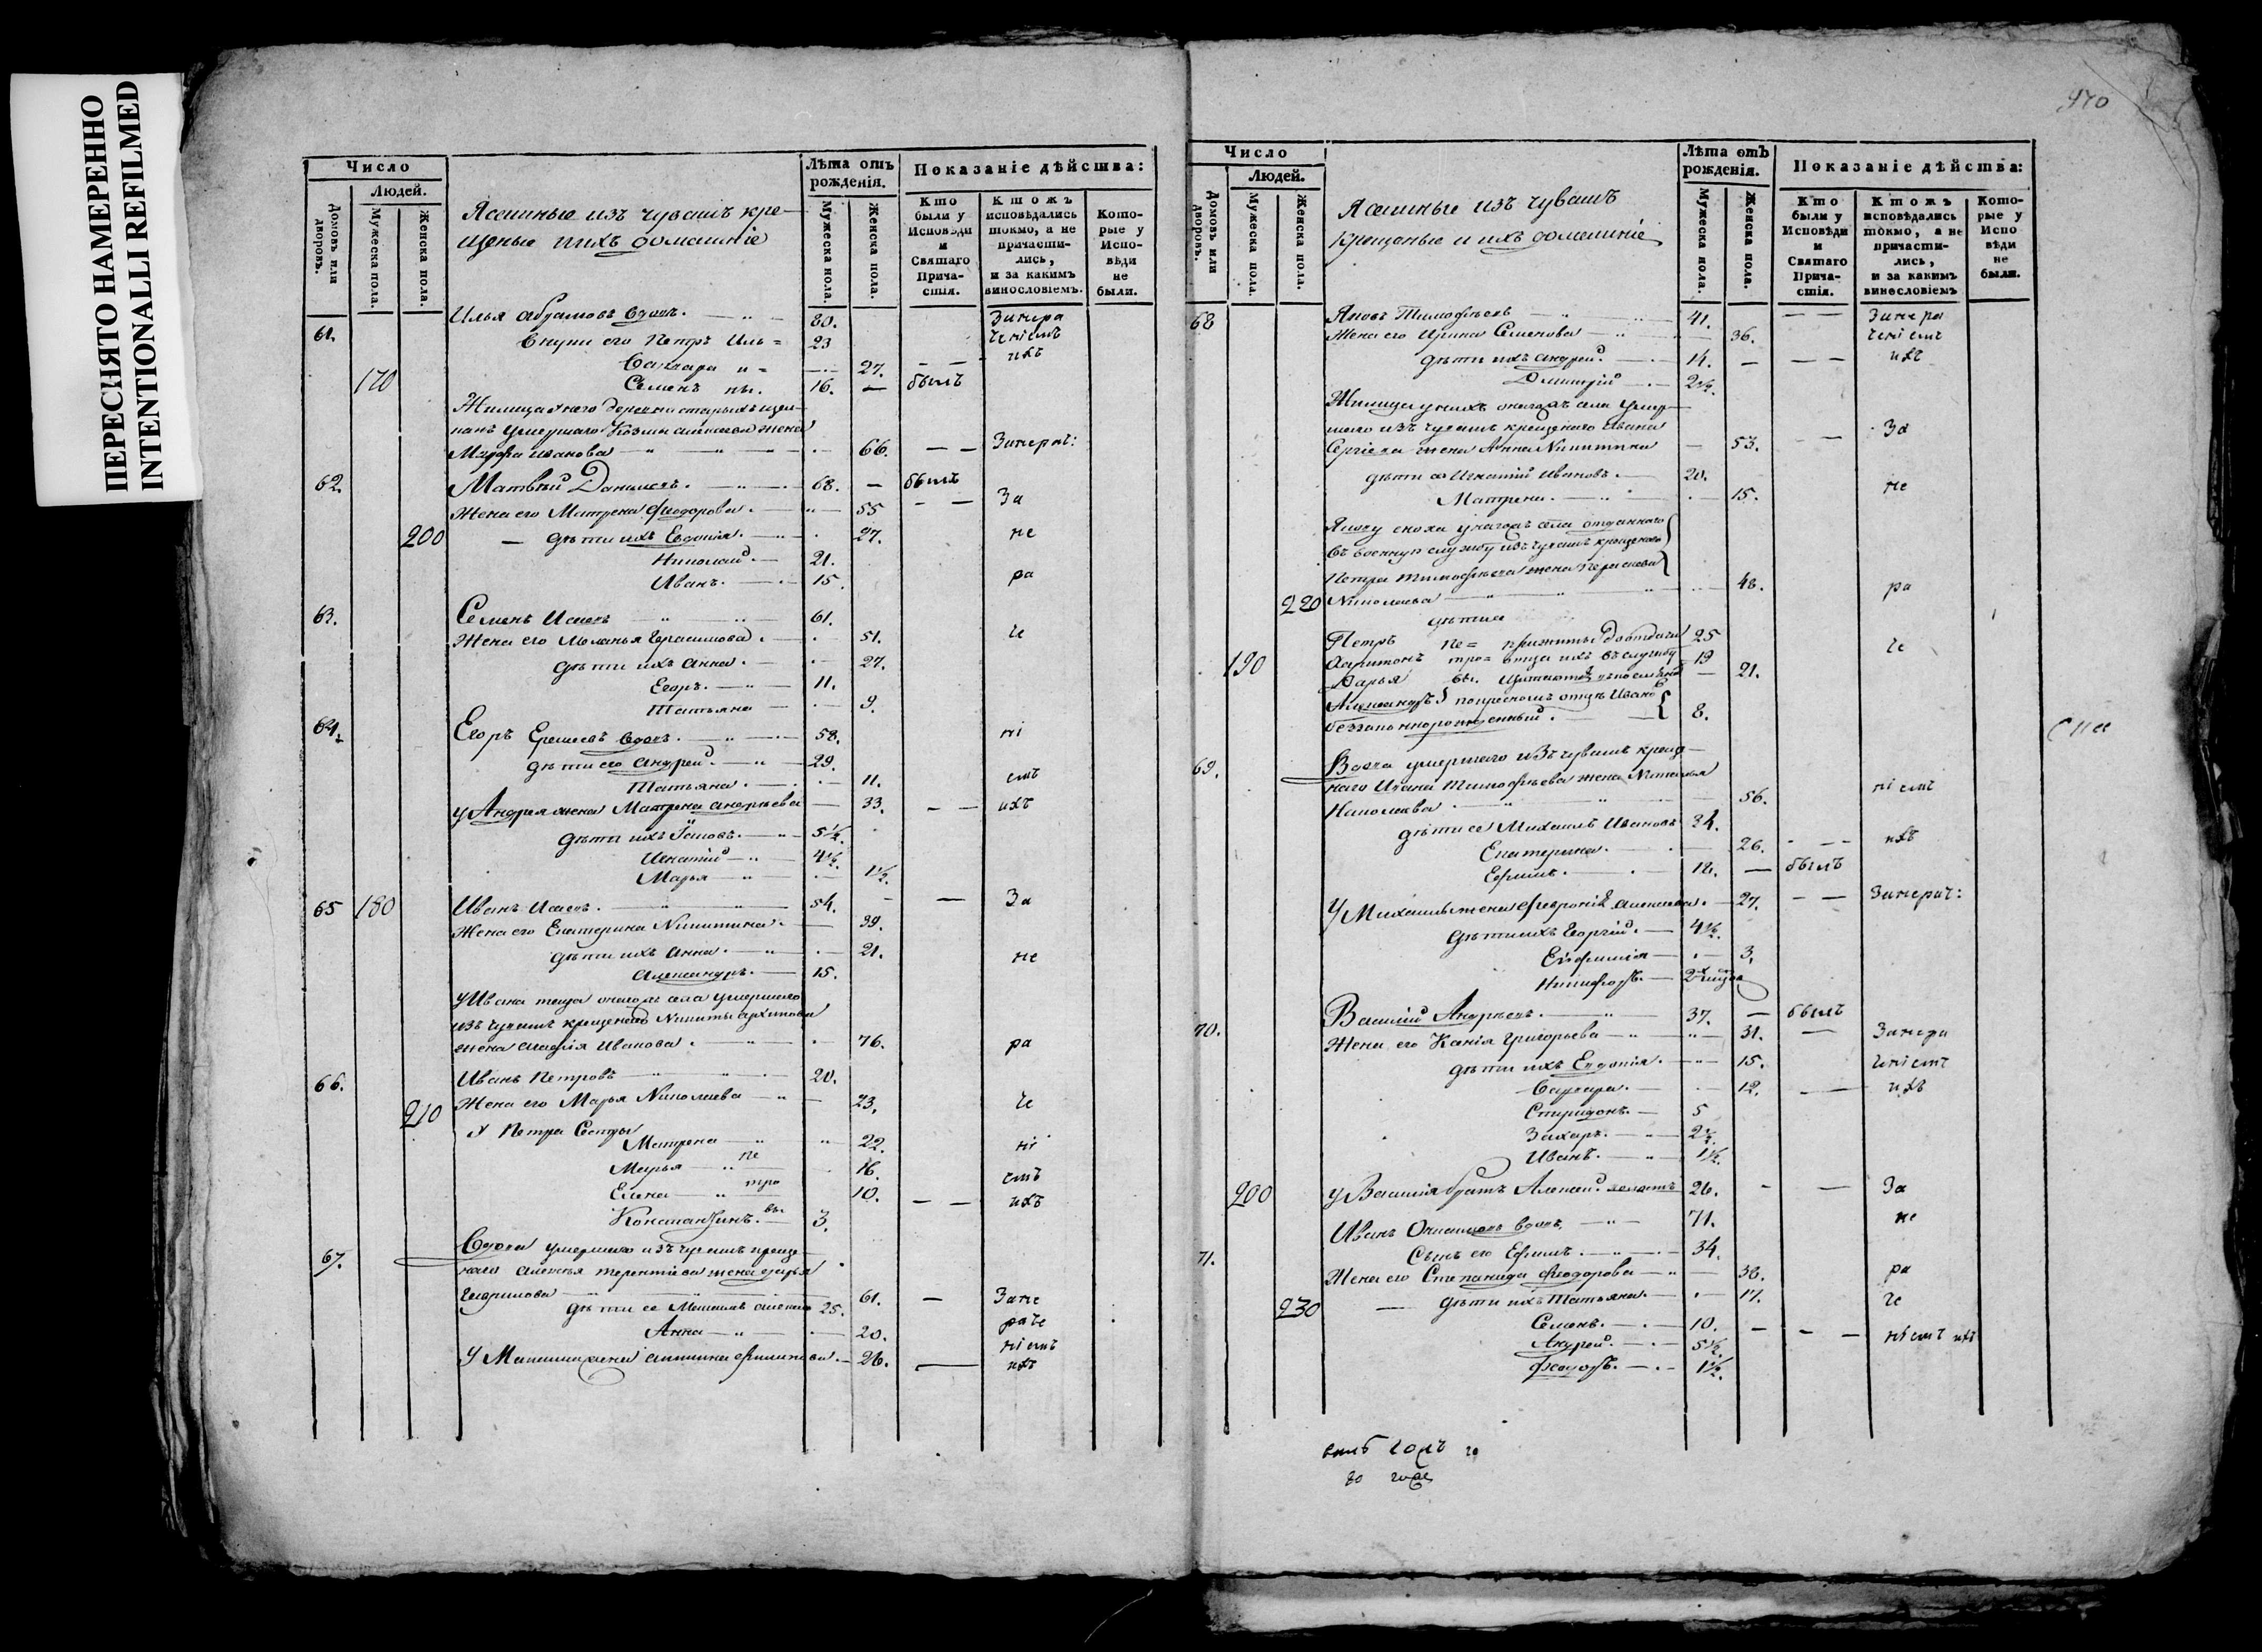 ПЕРЕСНЯТО НАМЕРЕННО
INTENTIONALLI REFILMED
970
Число
Людей.
Домовъ или дворовъ.
Мужеска пола.
Женска пола.
Ясашные изъ чувашъ кре-
щеные и ихъ домашніе
Лѣта отъ рожденія.
Мужеска пола.
Женска пола.
Показаніе дѣйства:
Кто были у Исповѣди и Святаго Прича-стія.
Кто жъ исповѣдались токмо, а не причасти-лись, и за какимъ винословіемъ.
Кото-рые у Испо-вѣди не были.
61. Илья Абрамовъ вдовъ. 80. Занера
Внуки его Петръ Иль= 23 ченіемъ
Варвара и= 27. ихъ
170 Семенъ ны. 16. былъ
умершаго Козмы Алексѣева жена
Марфа Иванова 66. Занерач:
62. Матвѣй Даниловъ. 68. былъ
Жена его Матрена Феодорова. 55 За
200 дѣти ихъ Евдокія. 27. не
Николай. 21.
Иванъ. 15. ра
63. Семенъ Исаевъ 61.
Жена его Меланья Герасимова. 51. че
дѣти ихъ Анна. 27.
Егоръ. 11.
Татьяна 9.
64. Егоръ Еремеевъ вдовъ. 58. ні
дѣти его Андрей. 29.
Татьяна. 11. емъ
у Андрея жена Матрена Андреева 33. ихъ
дѣти ихъ Іаковъ. 5½.
Игнатій 4½.
Марья 1½.
65 180 Иванъ Исаевъ. 54. За
Жена его Екатерина Никитина. 39.
дѣти ихъ Анна. 21. не
Александръ. 15.
у Ивана теща онагожъ села умершаго
изъ чувашъ крещенаго Никиты Архипова
жена Иванова. 76. ра
66. Иванъ Петровъ 20.
210 Жена его Марья Николаева 23. че
У Петра Сестры
Матрена 22. ні
Марья пе 16. емъ
Елена тро 10. ихъ
Константинъ. вы 3.
67. Вдова умершаго изъ чувашъ креще-
наго Алексѣя Терентіева жена Дарья
Гаврилова 61. Зане
дѣти ее Максимъ Алексѣевъ 25. раче
Анна 20. ніемъ
У Максима жена Филипова. 26. ихъ
Число
Людей.
Домовъ или дворовъ.
Мужеска пола.
Женска пола.
Ясашные изъ чувашъ
крещеные и ихъ домашніе
Лѣта отъ рожденія.
Мужеска пола.
Женска пола.
Показаніе дѣйства:
Кто были у Исповѣди и Святаго Прича-стія.
Кто жъ исповѣдались токмо, а не причасти-лись, и за какимъ винословіемъ
Кото-рые у Испо вѣди не были.
68 Яковъ Тимофѣевъ 41. Занера
Жена его Ирина Семенова 36. ченіемъ
дѣти ихъ Андрей. 14. ихъ
Дмитрій 2½.
Жилица у нихъ онагожъ села умер-
шаго изъ чувашъ крещенаго Ивана
Сергіева жена Анна Никитина 53. За
дѣти ея Игнатій Ивановъ. 20.
Матрена. 15. не
Якову сноха онагожъ села отданнаго
въ военную службу изъ чувашъ крещенаго
Петра Тимофѣева жена Парасковья
220 Николаева 48. ра
дѣти ея
Петръ Пе= прижиты до отдачи 25
190 Харитонъ тро= отца ихъ въ службу 19 че
Дарья вы. 21.
Александръ по крестномъ отцѣ Ивановъ
беззаконнорожденный. 8.
69. Вдова умершаго изъ чувашъ креще-
наго Ивана Тимофѣева жена Наталья
Николаева 56. ніемъ
дѣти ее Михаилъ Ивановъ 34.
Екатерина. 26. ихъ
Ефимъ. 18. былъ
У Михаила жена Феврония Алексѣева. 27. Занерач:
дѣти ихъ Георгій. 4½.
Евфимія 3.
Никифоръ.
70. Василій Андреевъ. 37. былъ
Жена его Ксенія Григорьева 31. Занера
дѣти ихъ Евдокія. 15. ченіемъ
Варвара. 12. ихъ
Спиридонъ. 5
Захаръ. 2½.
Иванъ. 1½.
200 у Василія братъ Алексѣй 26. За
71. Иванъ вдовъ 71. не
Сынъ его Ефимъ. 34.
Жена его Степанида Феодорова 38. ра
230 дѣти ихъ Татьяна. 17. че
Семенъ. 10.
Андрей. 5½. ніемъ ихъ
Федоръ. 1½.